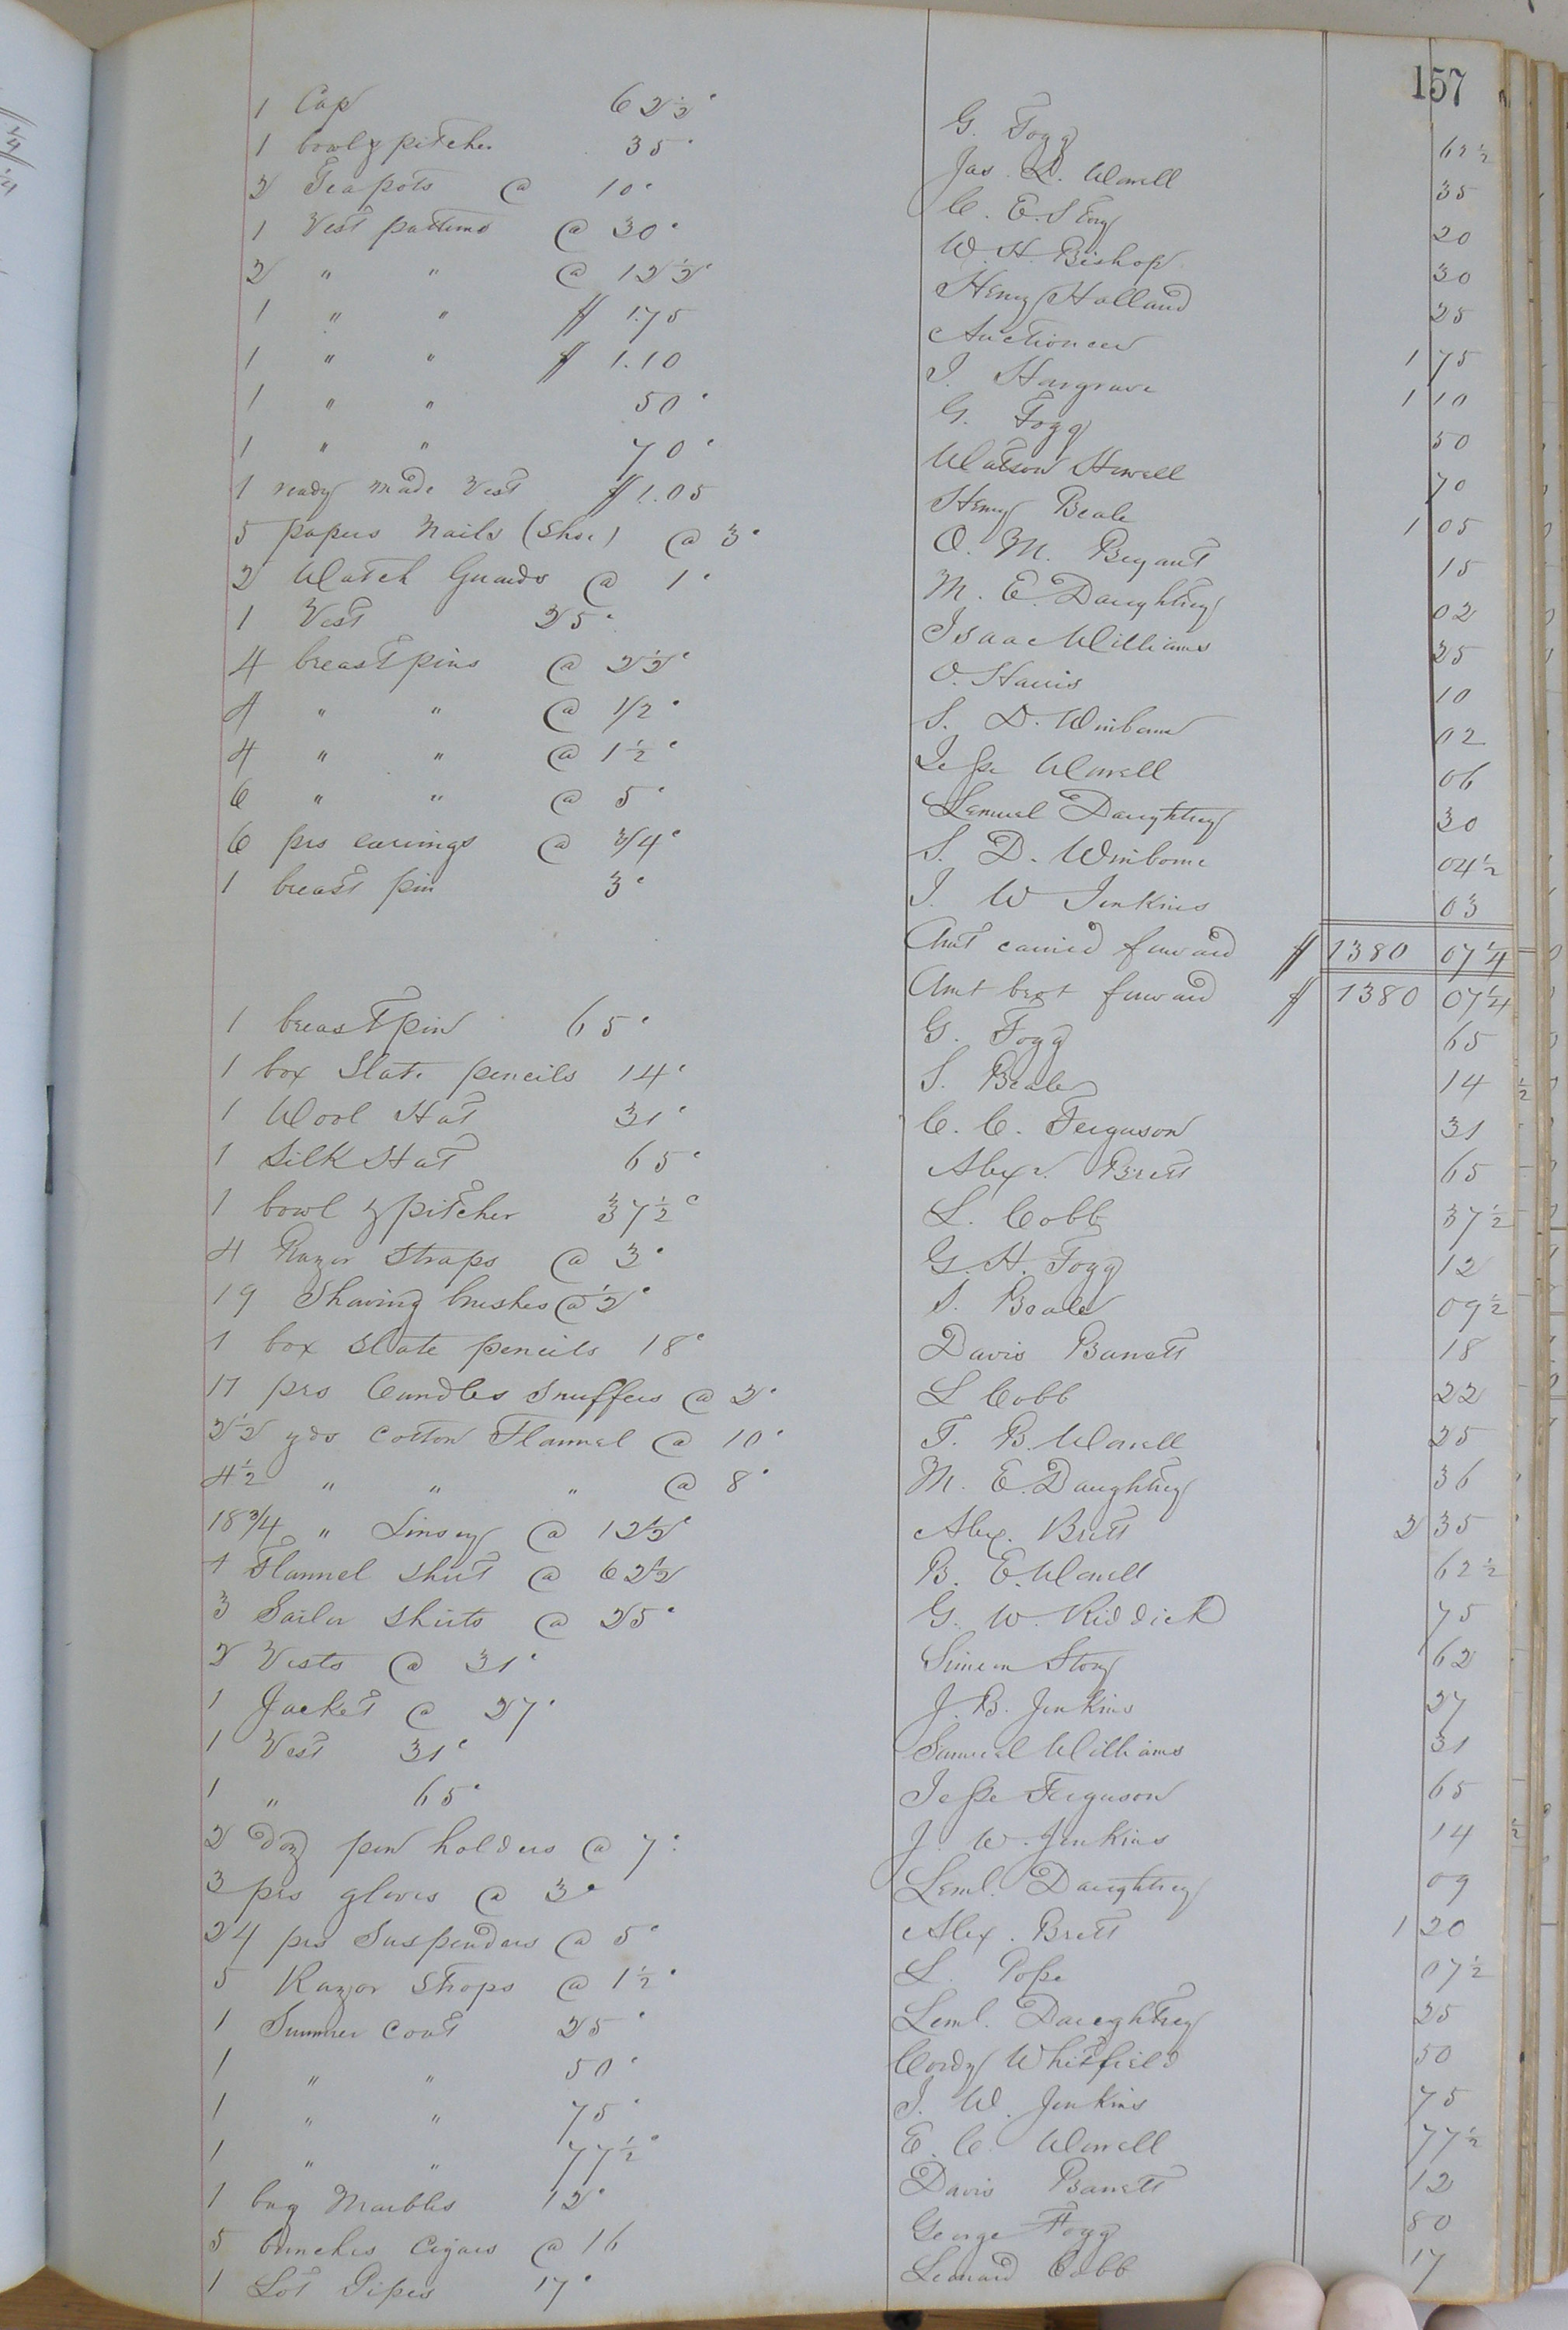 157
1 Cap 62½c G. Fogg 62½
1 bowl & pitcher 35c Jas. L. Worrell 35
2 Teapots @ 10c C. E. Story 20
1 Vest patterns @ 30c W. H. Bishop 30
2 " " @ 12½c Henry Holland 25
1 " " $ 1.75 Auctioneer 1 75
1 " " $ 1.10 J. Hargrave 1 10
1 " " 50c G. Fogg 50
1 " " 70c Watson Howell 70
1 ready made Vest $1.05 Henry Beale 1 05
5 papers Nails (Shoe) @ 3c O. M. Bryant 15
2 Watch Guards @ 1c M. E. Daughtrey 02
1 Vest 25c Isaac Williams 25
4 breast pins @ 2½c O. Harris 10
4 " " @ 1/2c S. D. Winborne 02
4 " " @ 1½c Jesse Worrell 06
6 " " @ 5c Lemuel Daughtrey 30
6 prs earings @ 3/4c S. D. Winborne 04½
1 breast pin 3c J. W Jenkins 03
Amt carried forward $ 1380 07¼
Amt brot forward $ 1380 07¼
1 breast pin 65c G. Fogg 65
1 box Slate pencils 14c S. Beale 14
1 Wool Hat 31c C. C. Ferguson 31
1 Silk Hat 65c Alexr. Britt 65
1 bowl & pitcher 37½c L. Cobb 37½
4 Razor Straps @ 3c G. H. Fogg 12
19 Shaving brushes @ ½c S. Beale 09½
1 box slate pencils 18c Davis Barrett 18
11 prs Candles Snuffers @ 2c L Cobb 22
2½ yds Cotton Flannel @ 10c T. B. Worrell 25
4½ " " " @ 8c M. E. Daughtrey 36
18¾ " Linsey @ 12½c Alex. Britt 2 35
1 Flannel Shirt @ 62½ B. E. Worrell 62½
3 Sailor Shirts @ 25c G. W. Riddick 75
2 Vests @ 31c Simeon Story 62
1 Jacket @ 27c J. B. Jenkins 27
1 Vest 31c Samuel Williams 31
1 " 65c Jesse Ferguson 65
2 Doz pen holders @ 7c J. W. Jenkins 14
3 prs gloves @ 3c Leml. Daughtrey 09
24 prs Suspenders @ 5c Alex. Britt 1 20
5 Razor Strops @ 1½c L. Pope 07½
1 Summer Coat 25c Leml. Daughtrey 25
1 " " 50c Cordy Whitfield 50
1 " " 75c J. W. Jenkins 75
1 " " 77½c E. C. Worrell 77½
1 bag Marbles 12c Davis Barrett 12
5 bunches Cigars @ 16 George Fogg 80
1 Lot Pipes 17c Leonard Cobb 17